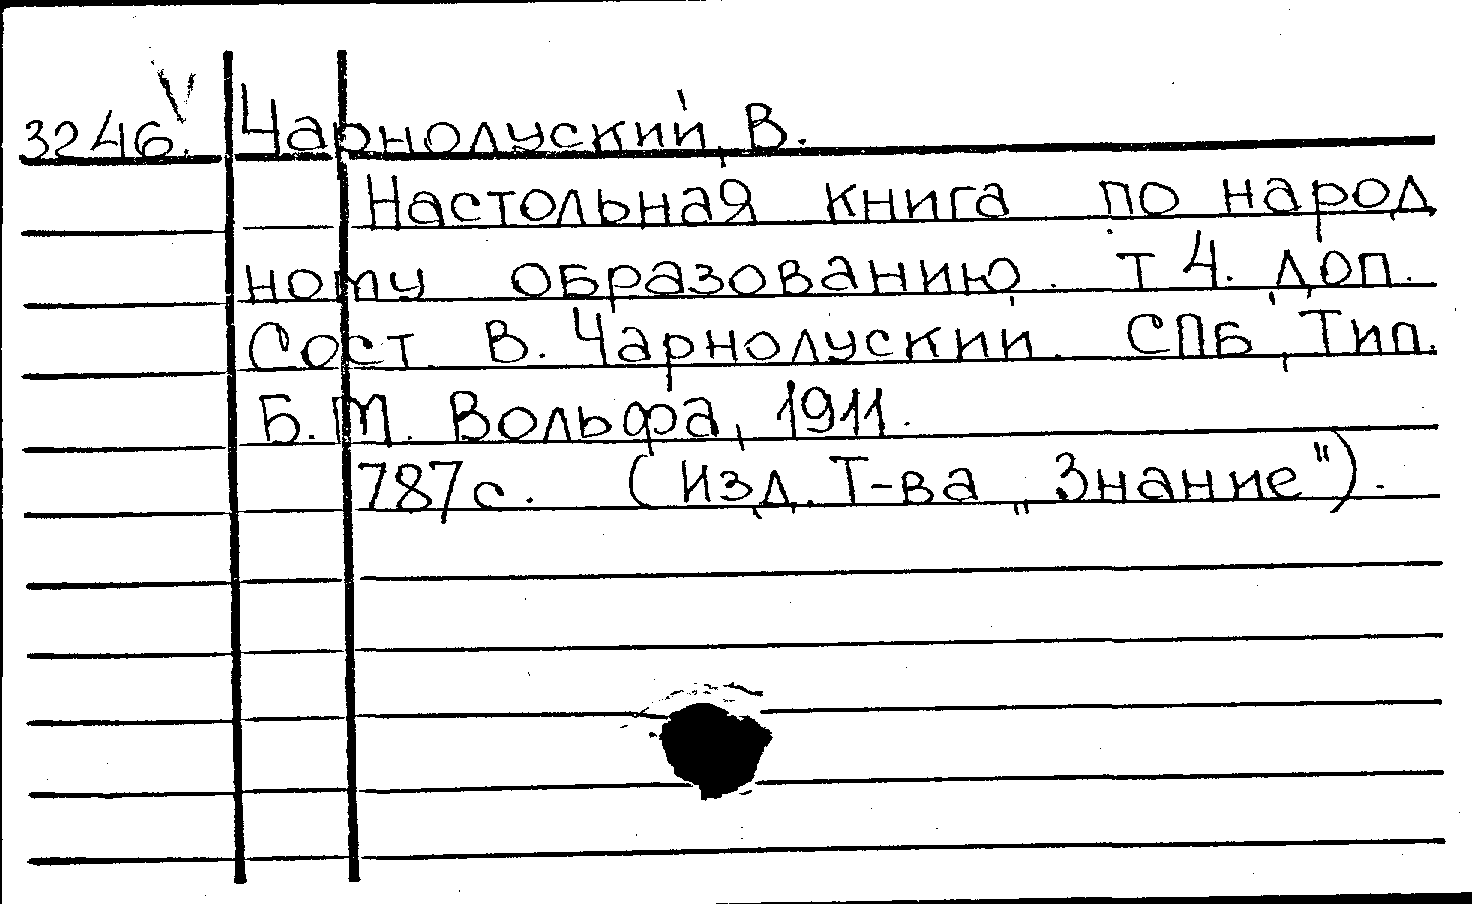 3246. Чарнолуский, В.
Настольная книга по народ
ному образованию. т 4. доп.
Сост В. Чарнолуский. СПБ, Тип.
Б.М. Вольфа, 1911.
787с. (Изд. Т-ва „Знание").